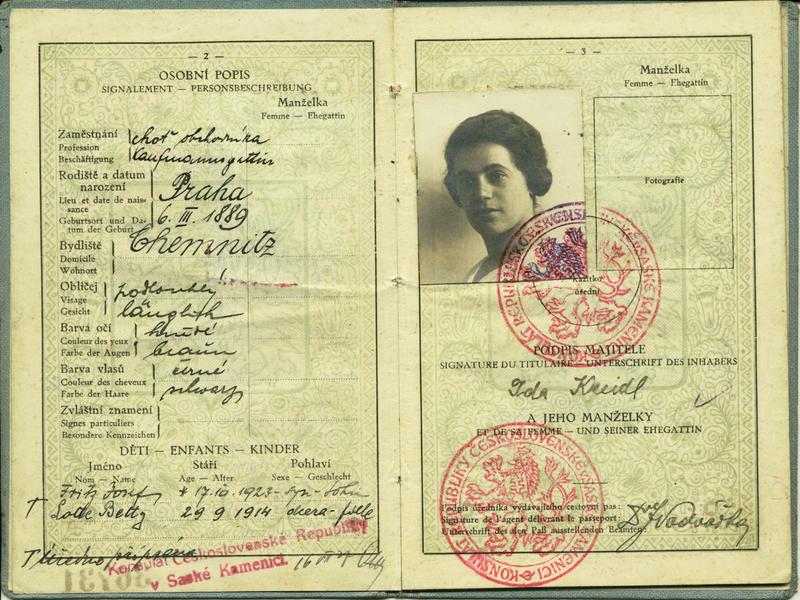 — 2 —
OSOBNÍ POPIS
SIGNALEMENT — PERSONSBESCHREIBUNG
Manželka
Femme — Ehegattin
Zaměstnání
Profession
Beschäftigung
choť obchodníka
Kaufmannsgattin
Rodiště a datum
narození
Lieu et date de nais-
sance
Geburtsort und Da-
tum der Geburt
Praha
6. III. 1889
Bydliště
Domicile
Wohnort
Chemnitz
Obličej
Visage
Gesicht
podlouhlý
länglich
Barva očí
Couleur des yeux
Farbe der Augen
hnědé
braun
Barva vlasů
Couleur des cheveux
Farbe der Haare
černé
schwarz
Zvláštní znamení
Signes particuliers
Besondere Kennzeichen
DĚTI — ENFANTS — KINDER
Jméno Stáří Pohlaví
Nom — Name Age — Alter Sexe — Geschlecht
Fritz Josef * 17.10.1923 - syn - Sohn
Lotte Betty 29 9 1914 dcera -
Konsulát Československé Republiky
v Saské Kamenici.
— 3 —
Manželka
Femme — Ehegattin
Fotografie
Razítko
úřední
PODPIS MAJITELE
SIGNATURE DU TITULAIRE — UNTERSCHRIFT DES INHABERS
Ida Kreidl
A JEHO MANŽELKY
ET DE SA FEMME — UND SEINER EHEGATTIN
Podpis úředníka vydávajícího cestovní pas:
Signature de l'agent délivrant le passeport:
Unterschrift des den Paß ausstellenden Beamten: